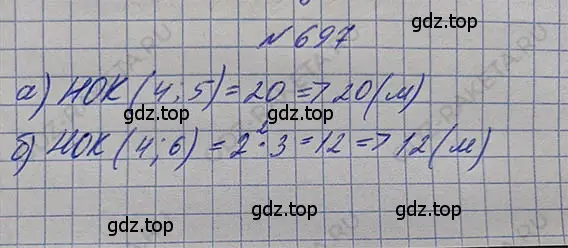 № 697
gdz.top
а) НОК (4; 5) = 20 => 20 (м)
gdz.top gdz.top
б) НОК (4; 6) = 2² · 3 = 12 => 12 (м)
gdz.top gdz.top